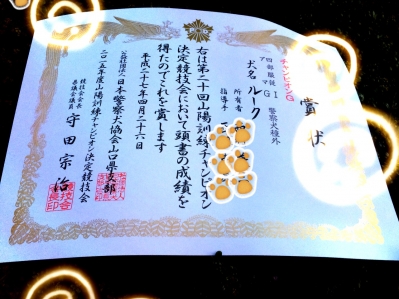 賞状
チャンピオンG
四部服従 GI 警察犬種外
ア マ
犬名 ルーク
所有者
指導手
右は第二十回山陽訓練チャンピオン
決定競技会において頭書の成績を
得たのでこれを賞します
平成二十七年四月二十六日
公益社団法人 日本警察犬協会山口県支部
二〇一五年度山陽訓練チャンピオン決定競技会
競技会会長
審議会議員 守田宗治